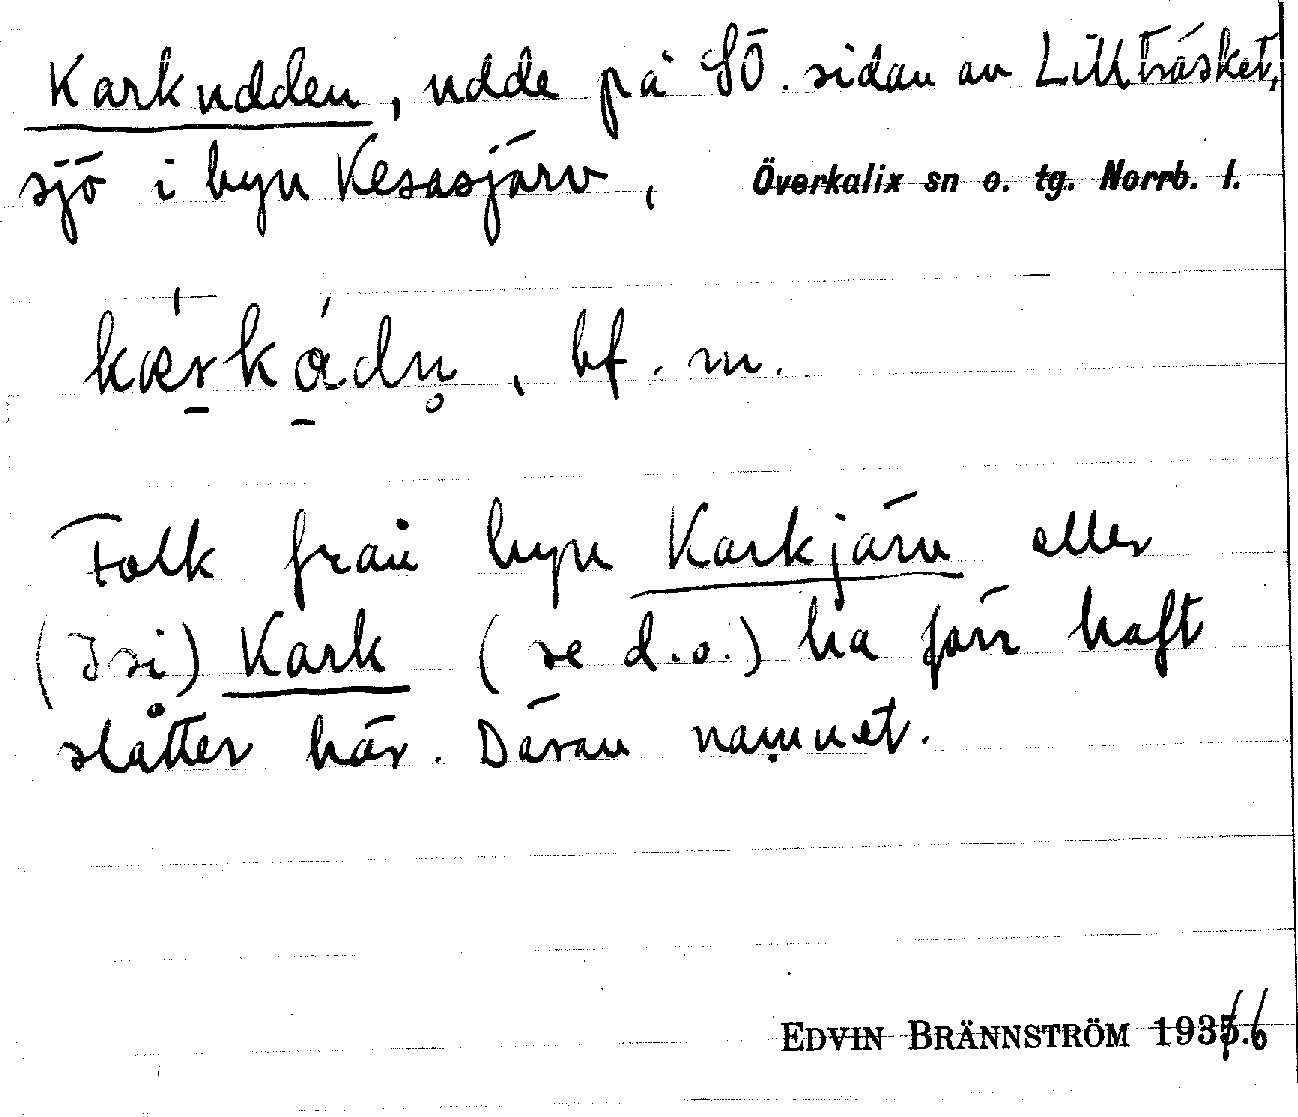 Karkudden, udde på SÖ. sidan av Lillträsket,
sjö i byn Kesasjärv, Överkalix sn o. tg. Norrb. l.
kærkådn̥, bf. m.
Folk från byn Karkjärv eller
(Isi) Kark (se d.o.) ha förr haft
slåtter här. Därav namnet.
EDVIN BRÄNNSTRÖM 1936